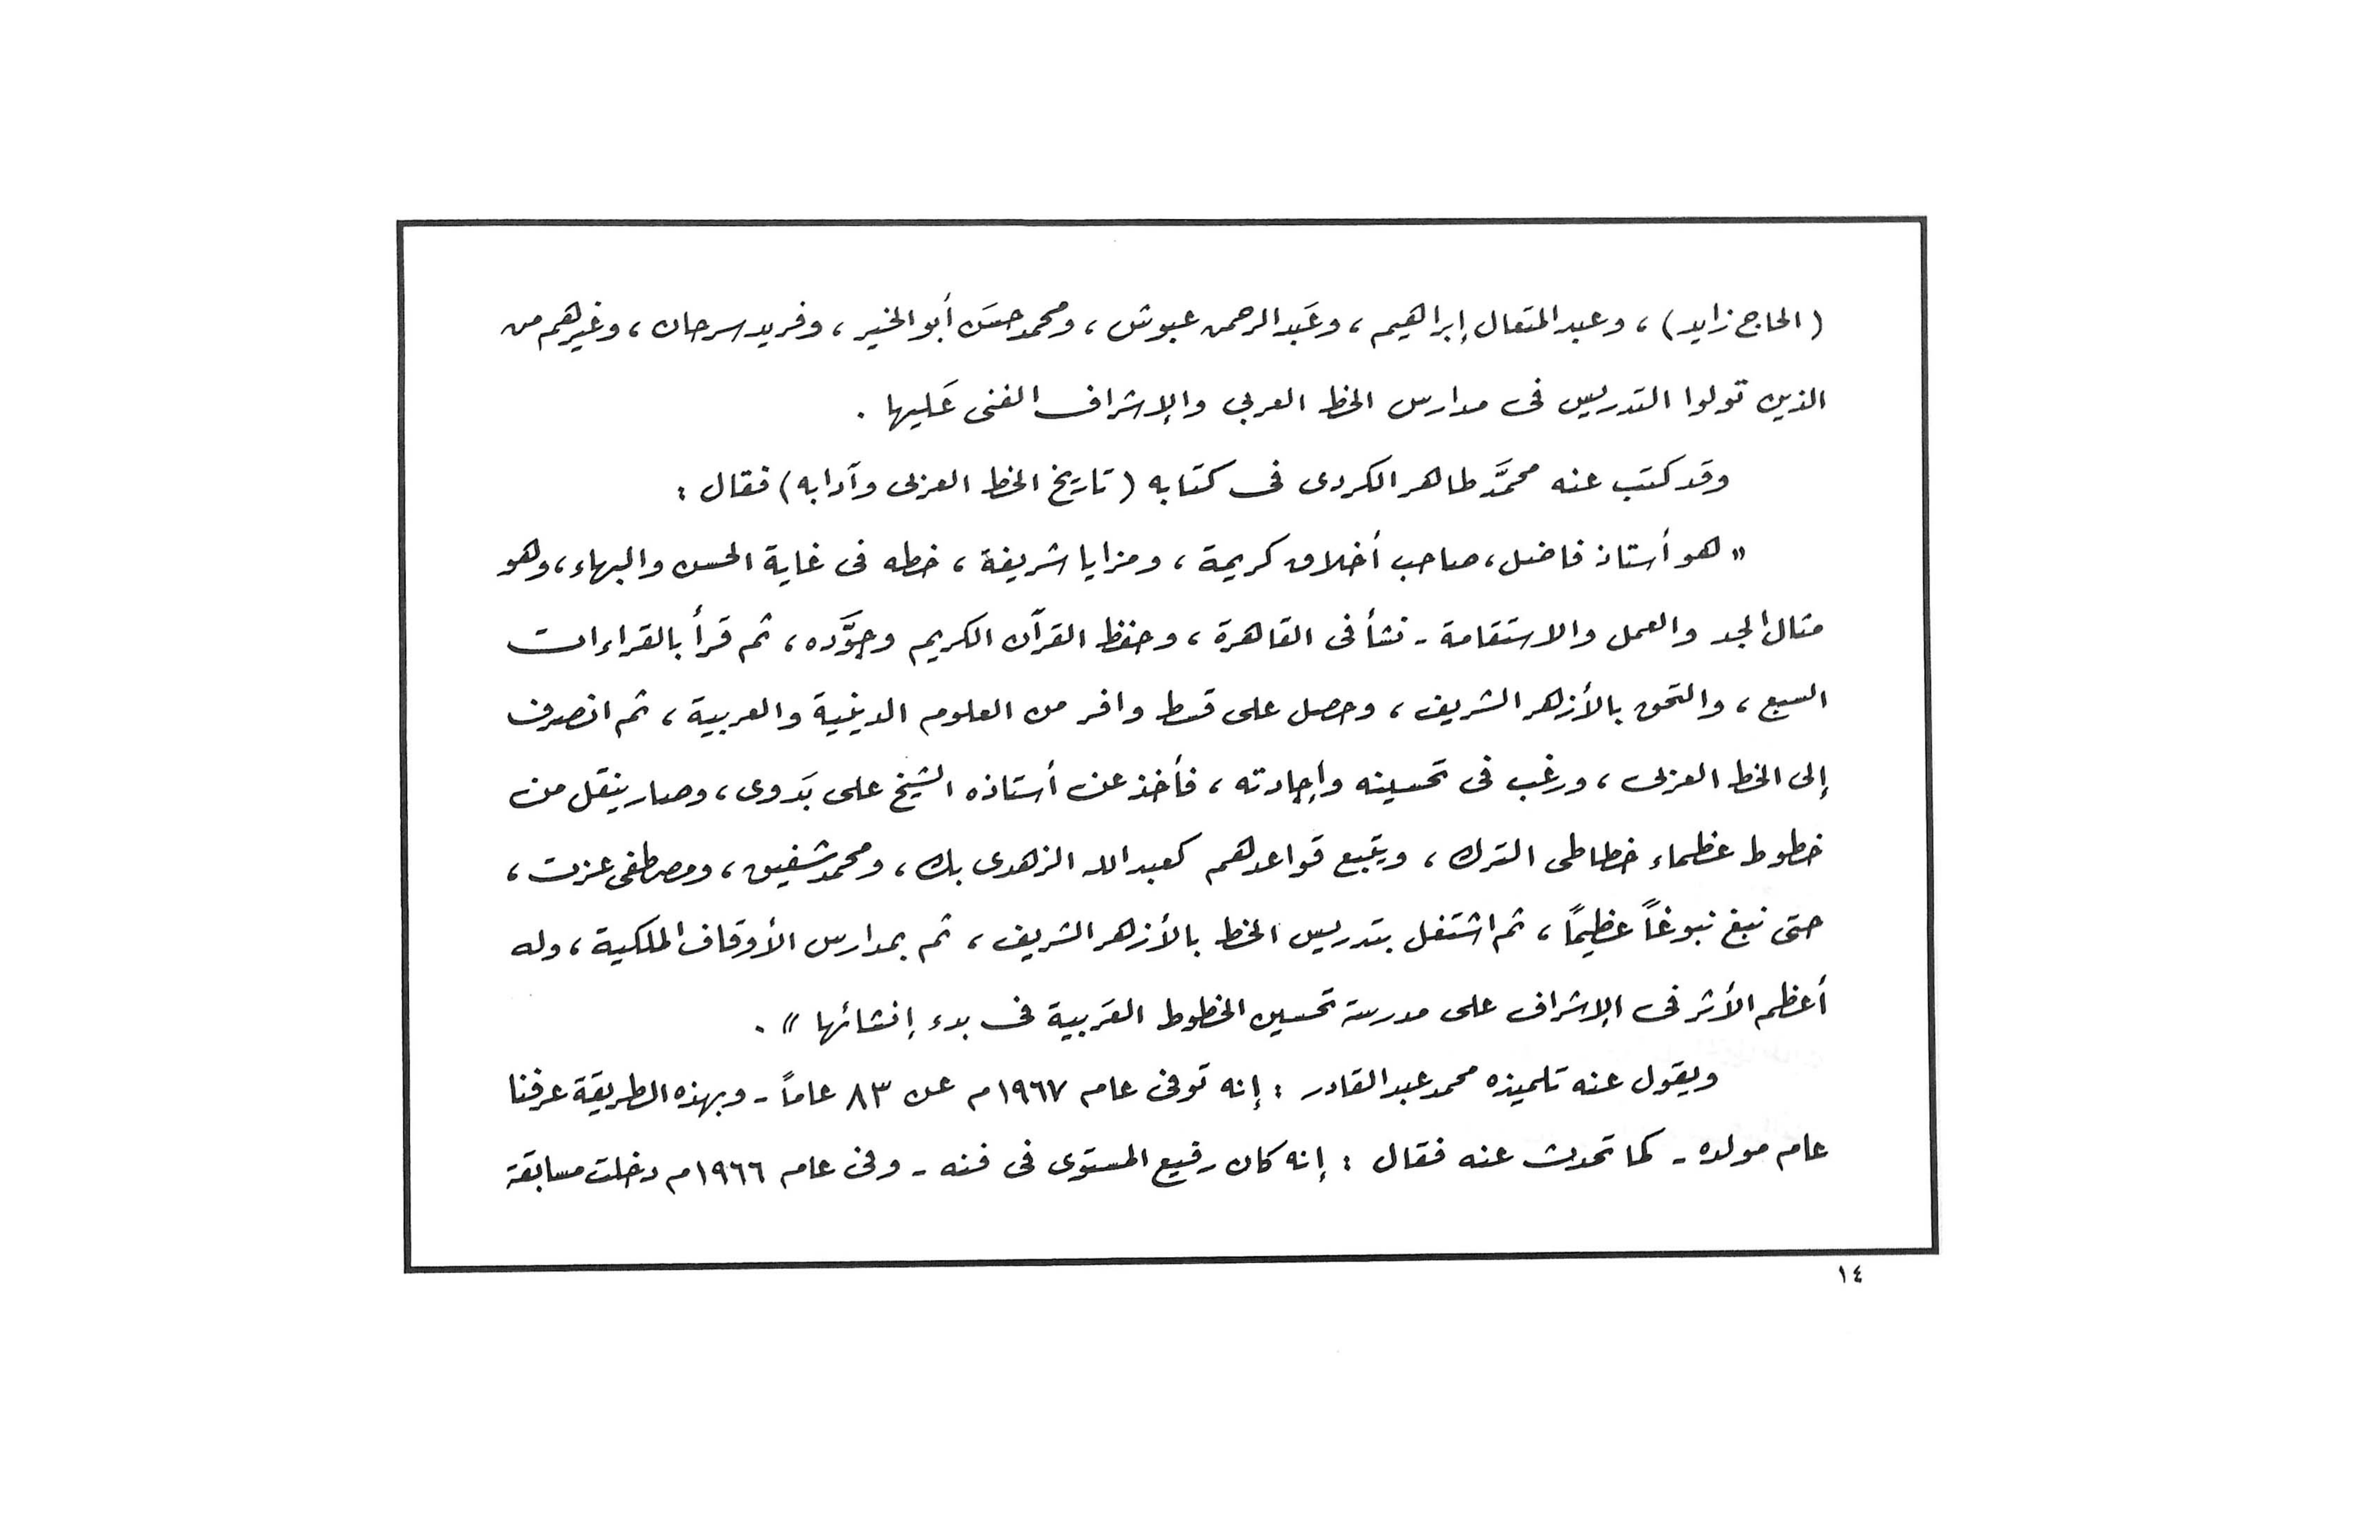 (الحاج زايد) ، وعبد المتعال إبراهيم ، وعَبد الرحمن عبوش ، ومحمد حسَن أبو الخير ، وفريد سرحان ، وغيرهم من
الذين تولوا التدريس فى مدارس الخط العربي والإشراف الفنى عَليها .
وقد كتب عنه محمَّد طاهر الكردى فى كتابه (تاريخ الخط العربى وآدابه) فقال :
« هو أستاذ فاضل ، صاحب أخلاق كريمة ، ومزايا شريفة ، خطه فى غاية الحسن والبهاء ، وهو
مثال الجد والعمل والاستقامة - نشأ فى القاهرة ، وحفظ القرآن الكريم وجوَّده ، ثم قرأ بالقراءات
السبع ، والتحق بالأزهر الشريف ، وحصل على قسط وافر من العلوم الدينية والعربية ، ثم انصرف
إلى الخط العربى ، ورغب فى تحسينه وإجادته ، فأخذ عن أستاذه الشيخ على بَدوى ، وصار ينقل من
خطوط عظماء خطاطى الترك ، ويتبع قواعدهم كعبد الله الزهدى بك ، ومحمد شفيق ، ومصطفى عزت ،
حتى نبغ نبوغاً عظيمًا ، ثم اشتغل بتدريس الخط بالأزهر الشريف ، ثم بمدارس الأوقاف الملكية ، وله
أعظم الأثر فى الإشراف على مدرسة تحسين الخطوط العَربية فى بدء إنشائها » .
ويقول عنه تلميذه محمد عبد القادر : إنه توفى عام ١٩٦٧م عن ٨٣ عاماً - وبهذه الطريقة عرفنا
عام مولده - كما تحدث عنه فقال : إنه كان رفيع المستوى فى فنه - وفى عام ١٩٦٦م دخلت مسابقة
١٤